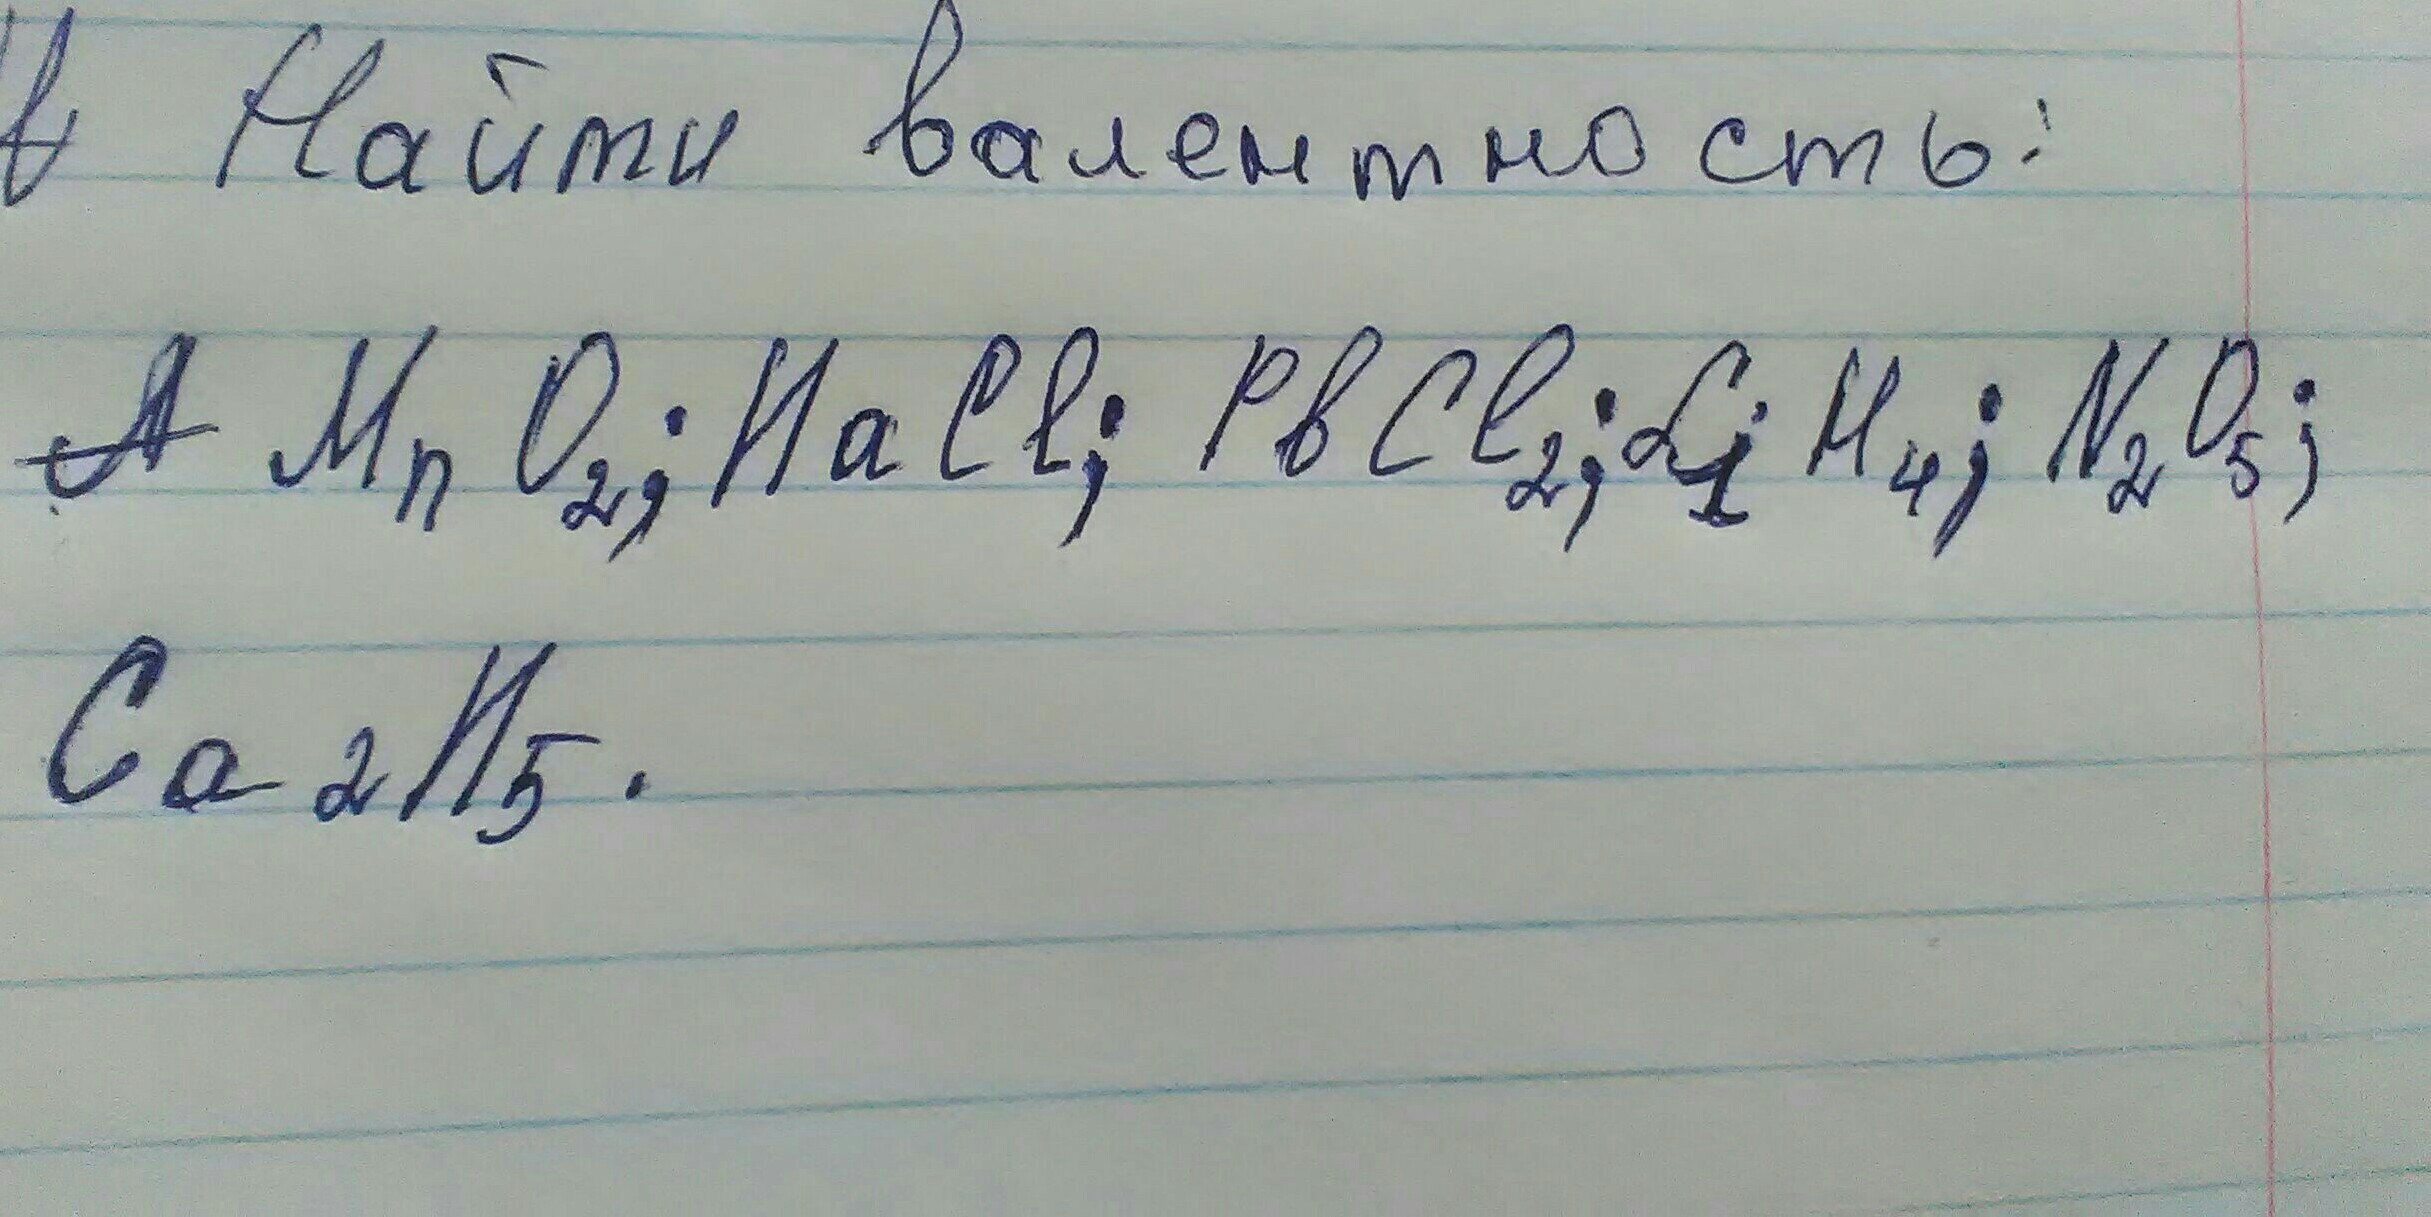 Найти валентность:
A MnO₂; NaCl; PbCl₂; H₄; N₂O₅;
Ca₂H₅.